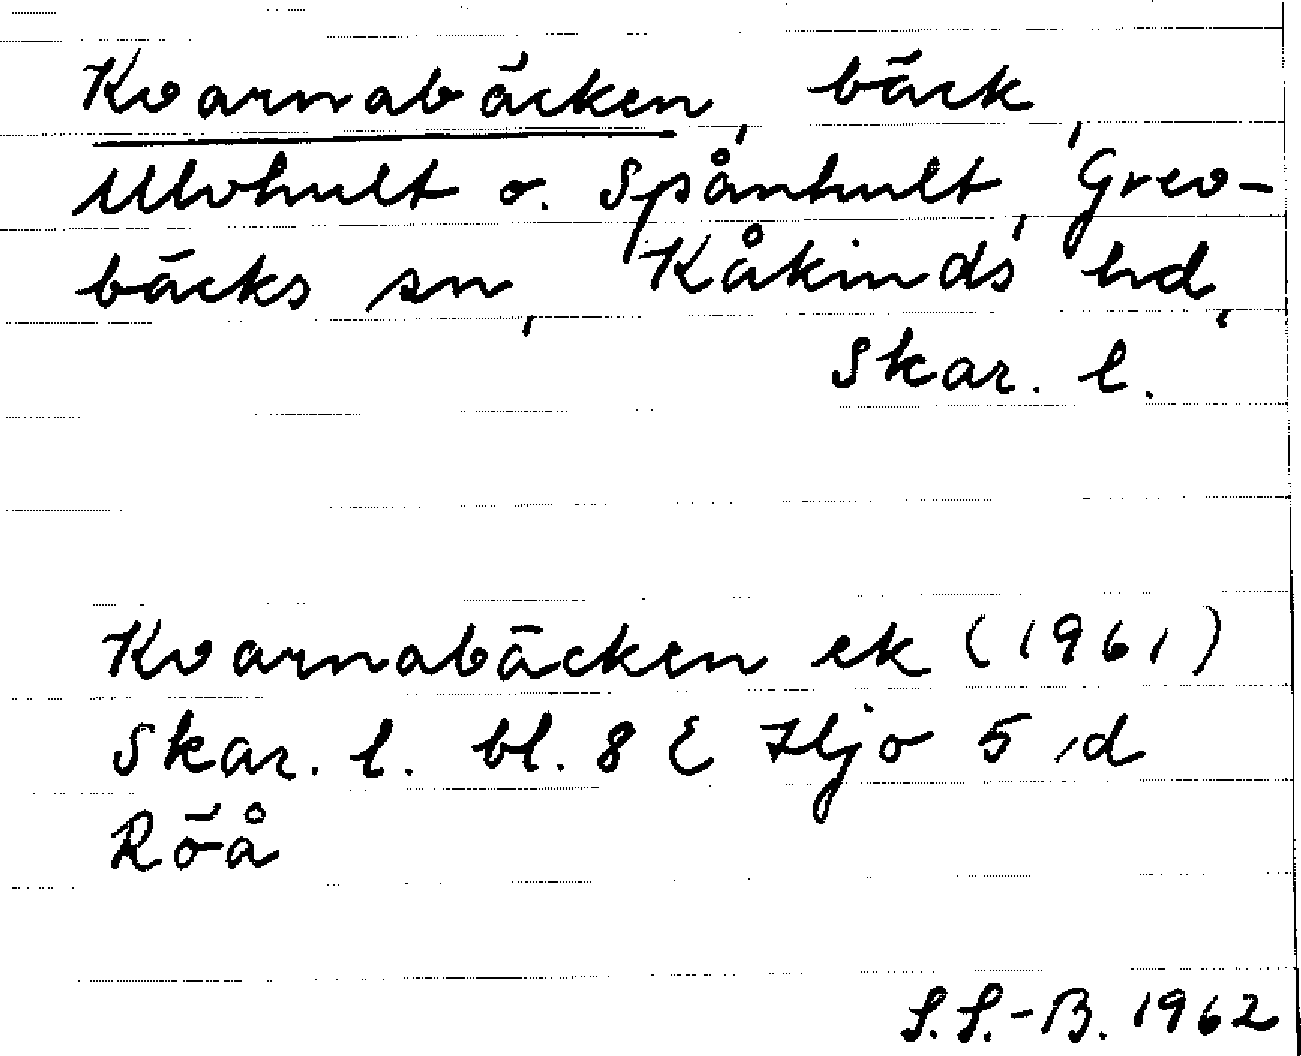 Kvarnabäcken, bäck,
Ulvhult o. Spånhult, Grev-
bäcks sn, Kåkinds hd,
Skar. l.
Kvarnabäcken ek (1961)
Skar. l. bl. 8 E Hjo 5 d
Röå
S.S.-B. 1962